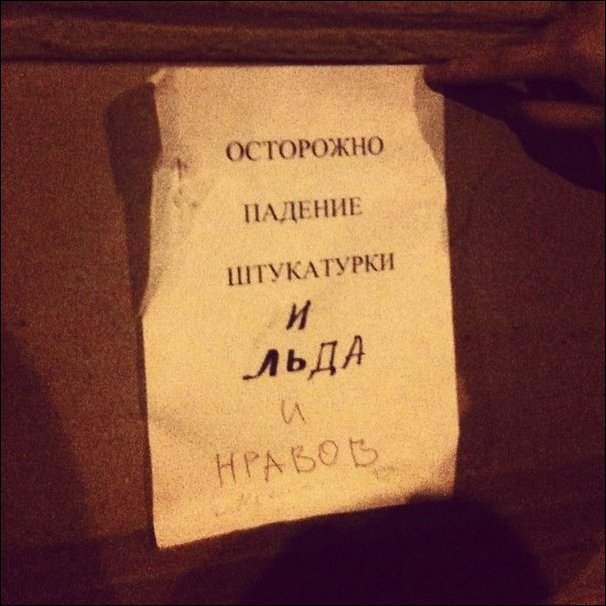 ОСТОРОЖНО
ПАДЕНИЕ
ШТУКАТУРКИ
И
ЛЬДА
И
НРАВОВ